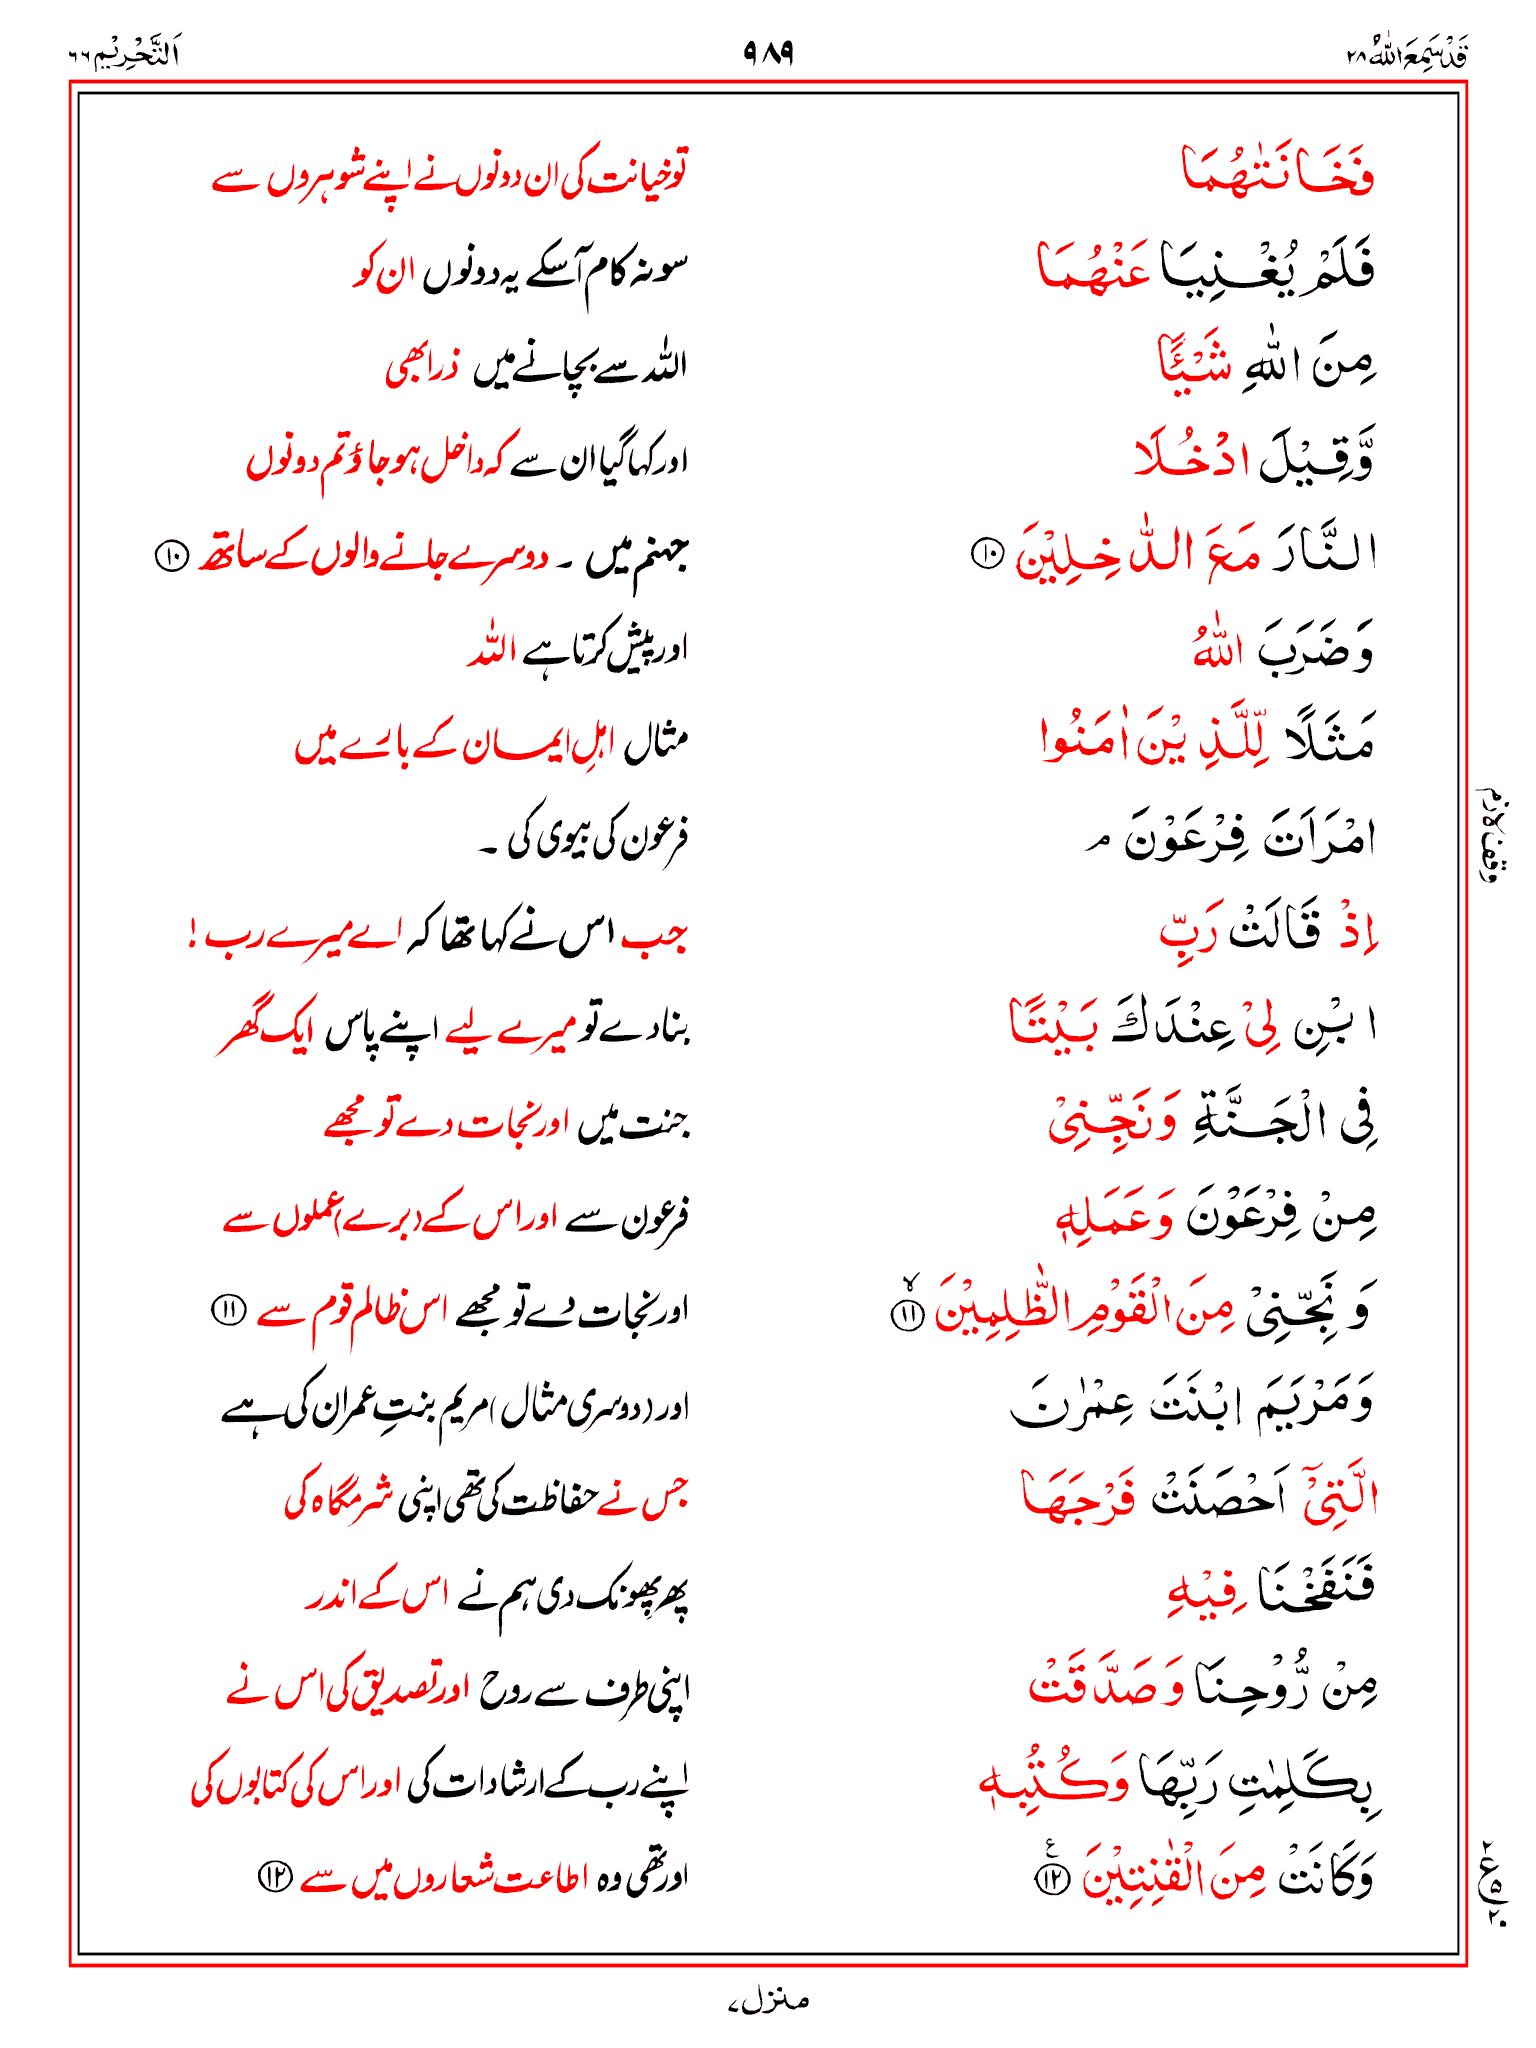 قَدْ سَمِعَ اللّٰهُ ٢٨
٩٨٩
اَلتَّحْرِيْم ٦٦
فَخَانَتٰهُمَا تو خیانت کی ان دونوں نے اپنے شوہروں سے
فَلَمْ يُغْنِيَا عَنْهُمَا سو نہ کام آسکے یہ دونوں ان کو
مِنَ اللّٰهِ شَيْـًٔا اللہ سے بچانے میں ذرا بھی
وَّقِيْلَ ادْخُلَا اور کہا گیا ان سے کہ داخل ہو جاؤ تم دونوں
النَّارَ مَعَ الدّٰخِلِيْنَ ⑩ جہنم میں ۔ دوسرے جانے والوں کے ساتھ ⑩
وَضَرَبَ اللّٰهُ اور پیش کرتا ہے اللہ
مَثَلًا لِّلَّذِيْنَ اٰمَنُوا مثال اہلِ ایمان کے بارے میں
امْرَاَتَ فِرْعَوْنَ ۘ فرعون کی بیوی کی ۔
وقف لازم
اِذْ قَالَتْ رَبِّ جب اس نے کہا تھا کہ اے میرے رب !
ابْنِ لِيْ عِنْدَكَ بَيْتًا بنا دے تو میرے لیے اپنے پاس ایک گھر
فِي الْجَنَّةِ وَنَجِّنِيْ جنت میں اور نجات دے تو مجھے
مِنْ فِرْعَوْنَ وَعَمَلِهٖ فرعون سے اور اس کے (برے) عملوں سے
وَنَجِّنِيْ مِنَ الْقَوْمِ الظّٰلِمِيْنَ ۙ ⑪ اور نجات دے تو مجھے اس ظالم قوم سے ⑪
وَمَرْيَمَ ابْنَتَ عِمْرٰنَ اور (دوسری مثال) مریم بنتِ عمران کی ہے
الَّتِيْٓ اَحْصَنَتْ فَرْجَهَا جس نے حفاظت کی تھی اپنی شرمگاہ کی
فَنَفَخْنَا فِيْهِ پھر پھونک دی ہم نے اس کے اندر
مِنْ رُّوْحِنَا وَصَدَّقَتْ اپنی طرف سے روح اور تصدیق کی اس نے
بِكَلِمٰتِ رَبِّهَا وَكُتُبِهٖ اپنے رب کے ارشادات کی اور اس کی کتابوں کی
وَكَانَتْ مِنَ الْقٰنِتِيْنَ ⑫ ع اور تھی وہ اطاعت شعاروں میں سے ⑫
٢ ع ٥ ٢٠
منزل ٧